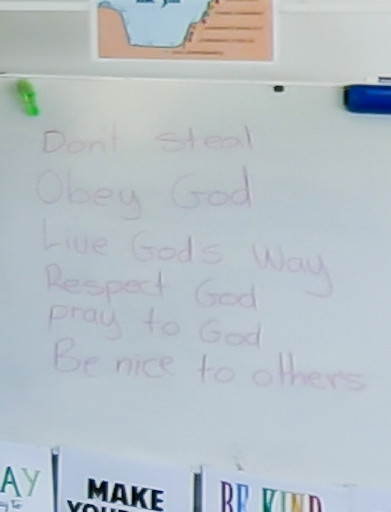 Dont steal
Obey God
Live Gods Way
Respect God
pray to God
Be nice to others
AY
MAKE
BE KIND